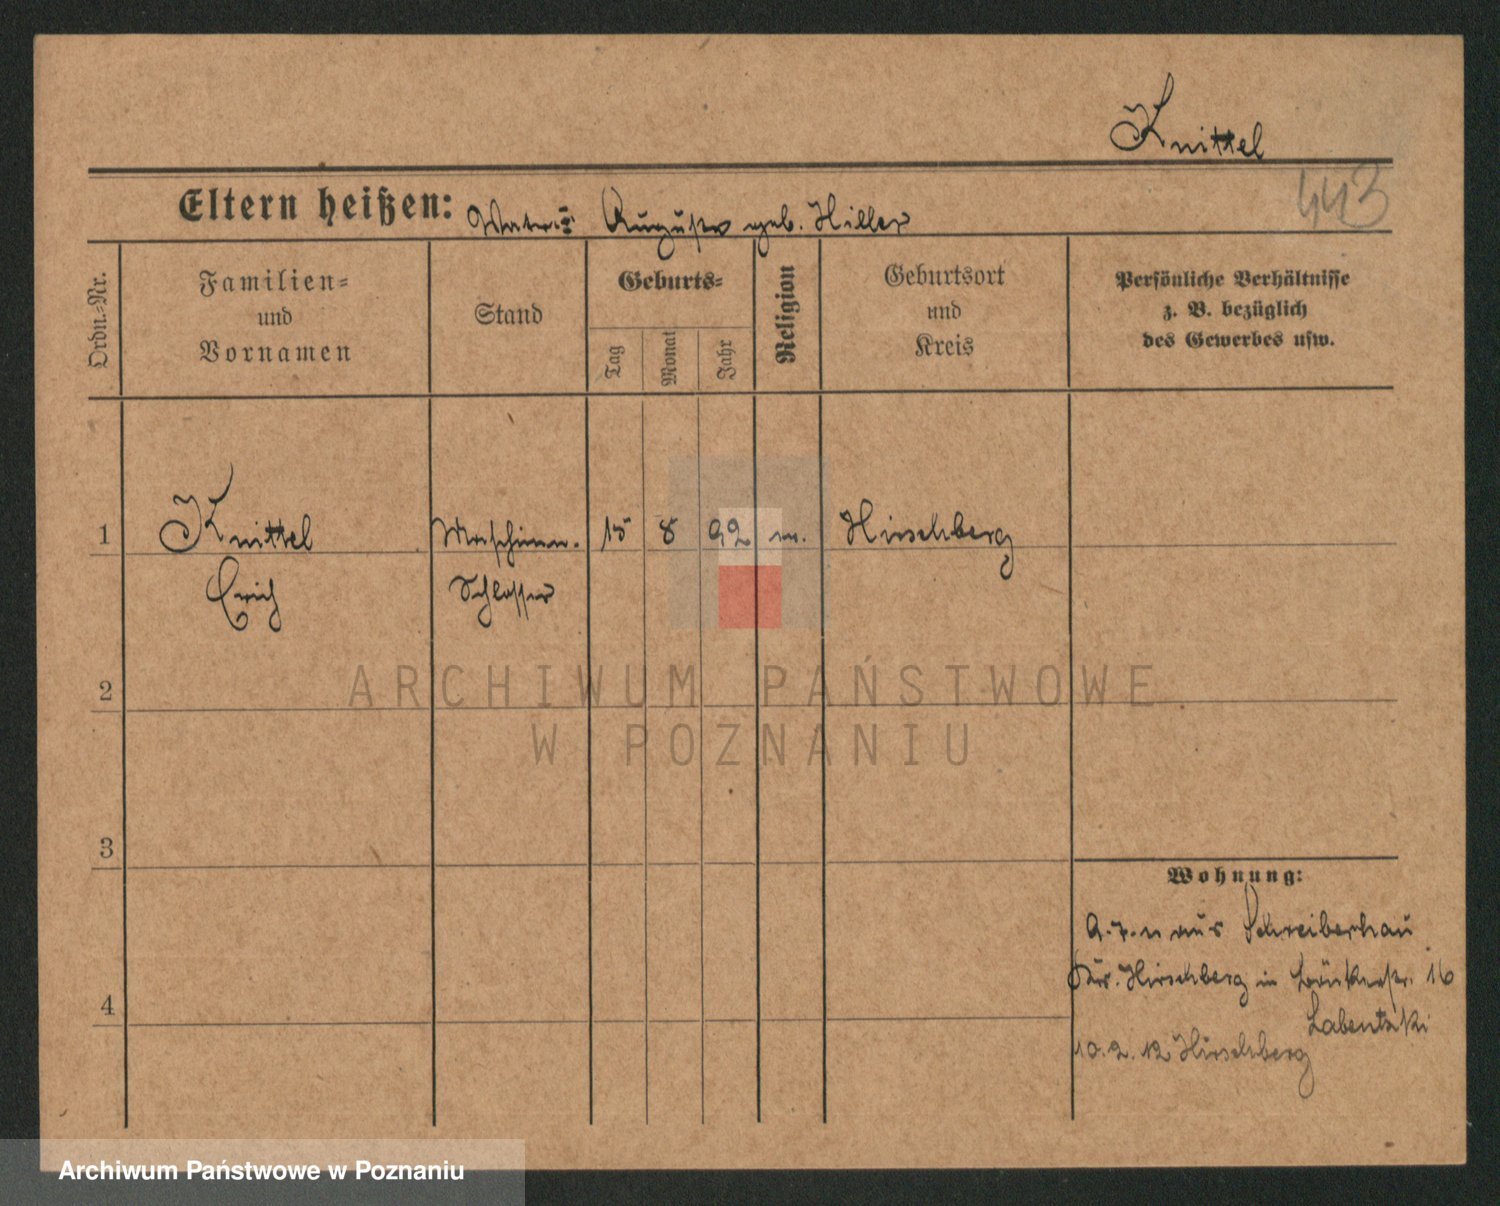 Knittel
443
Eltern heißen: August geb. Hiller
Ordn.=Nr.
Familien=
und
Vornamen
Stand
Geburts=
Tag
Monat
Jahr
Religion
Geburtsort
und
Kreis
Persönliche Verhältnisse
z. B. bezüglich
des Gewerbes usw.
1
Knittel
Erich
Maschinen-
Schlosser
15
8
92
Hirschberg
2
3
4
Wohnung:
aus Schreiberhau
Hirschberg in 16
Labentzki
10.2.12 Hirschberg
ARCHIWUM PAŃSTWOWE
W POZNANIU
Archiwum Państwowe w Poznaniu